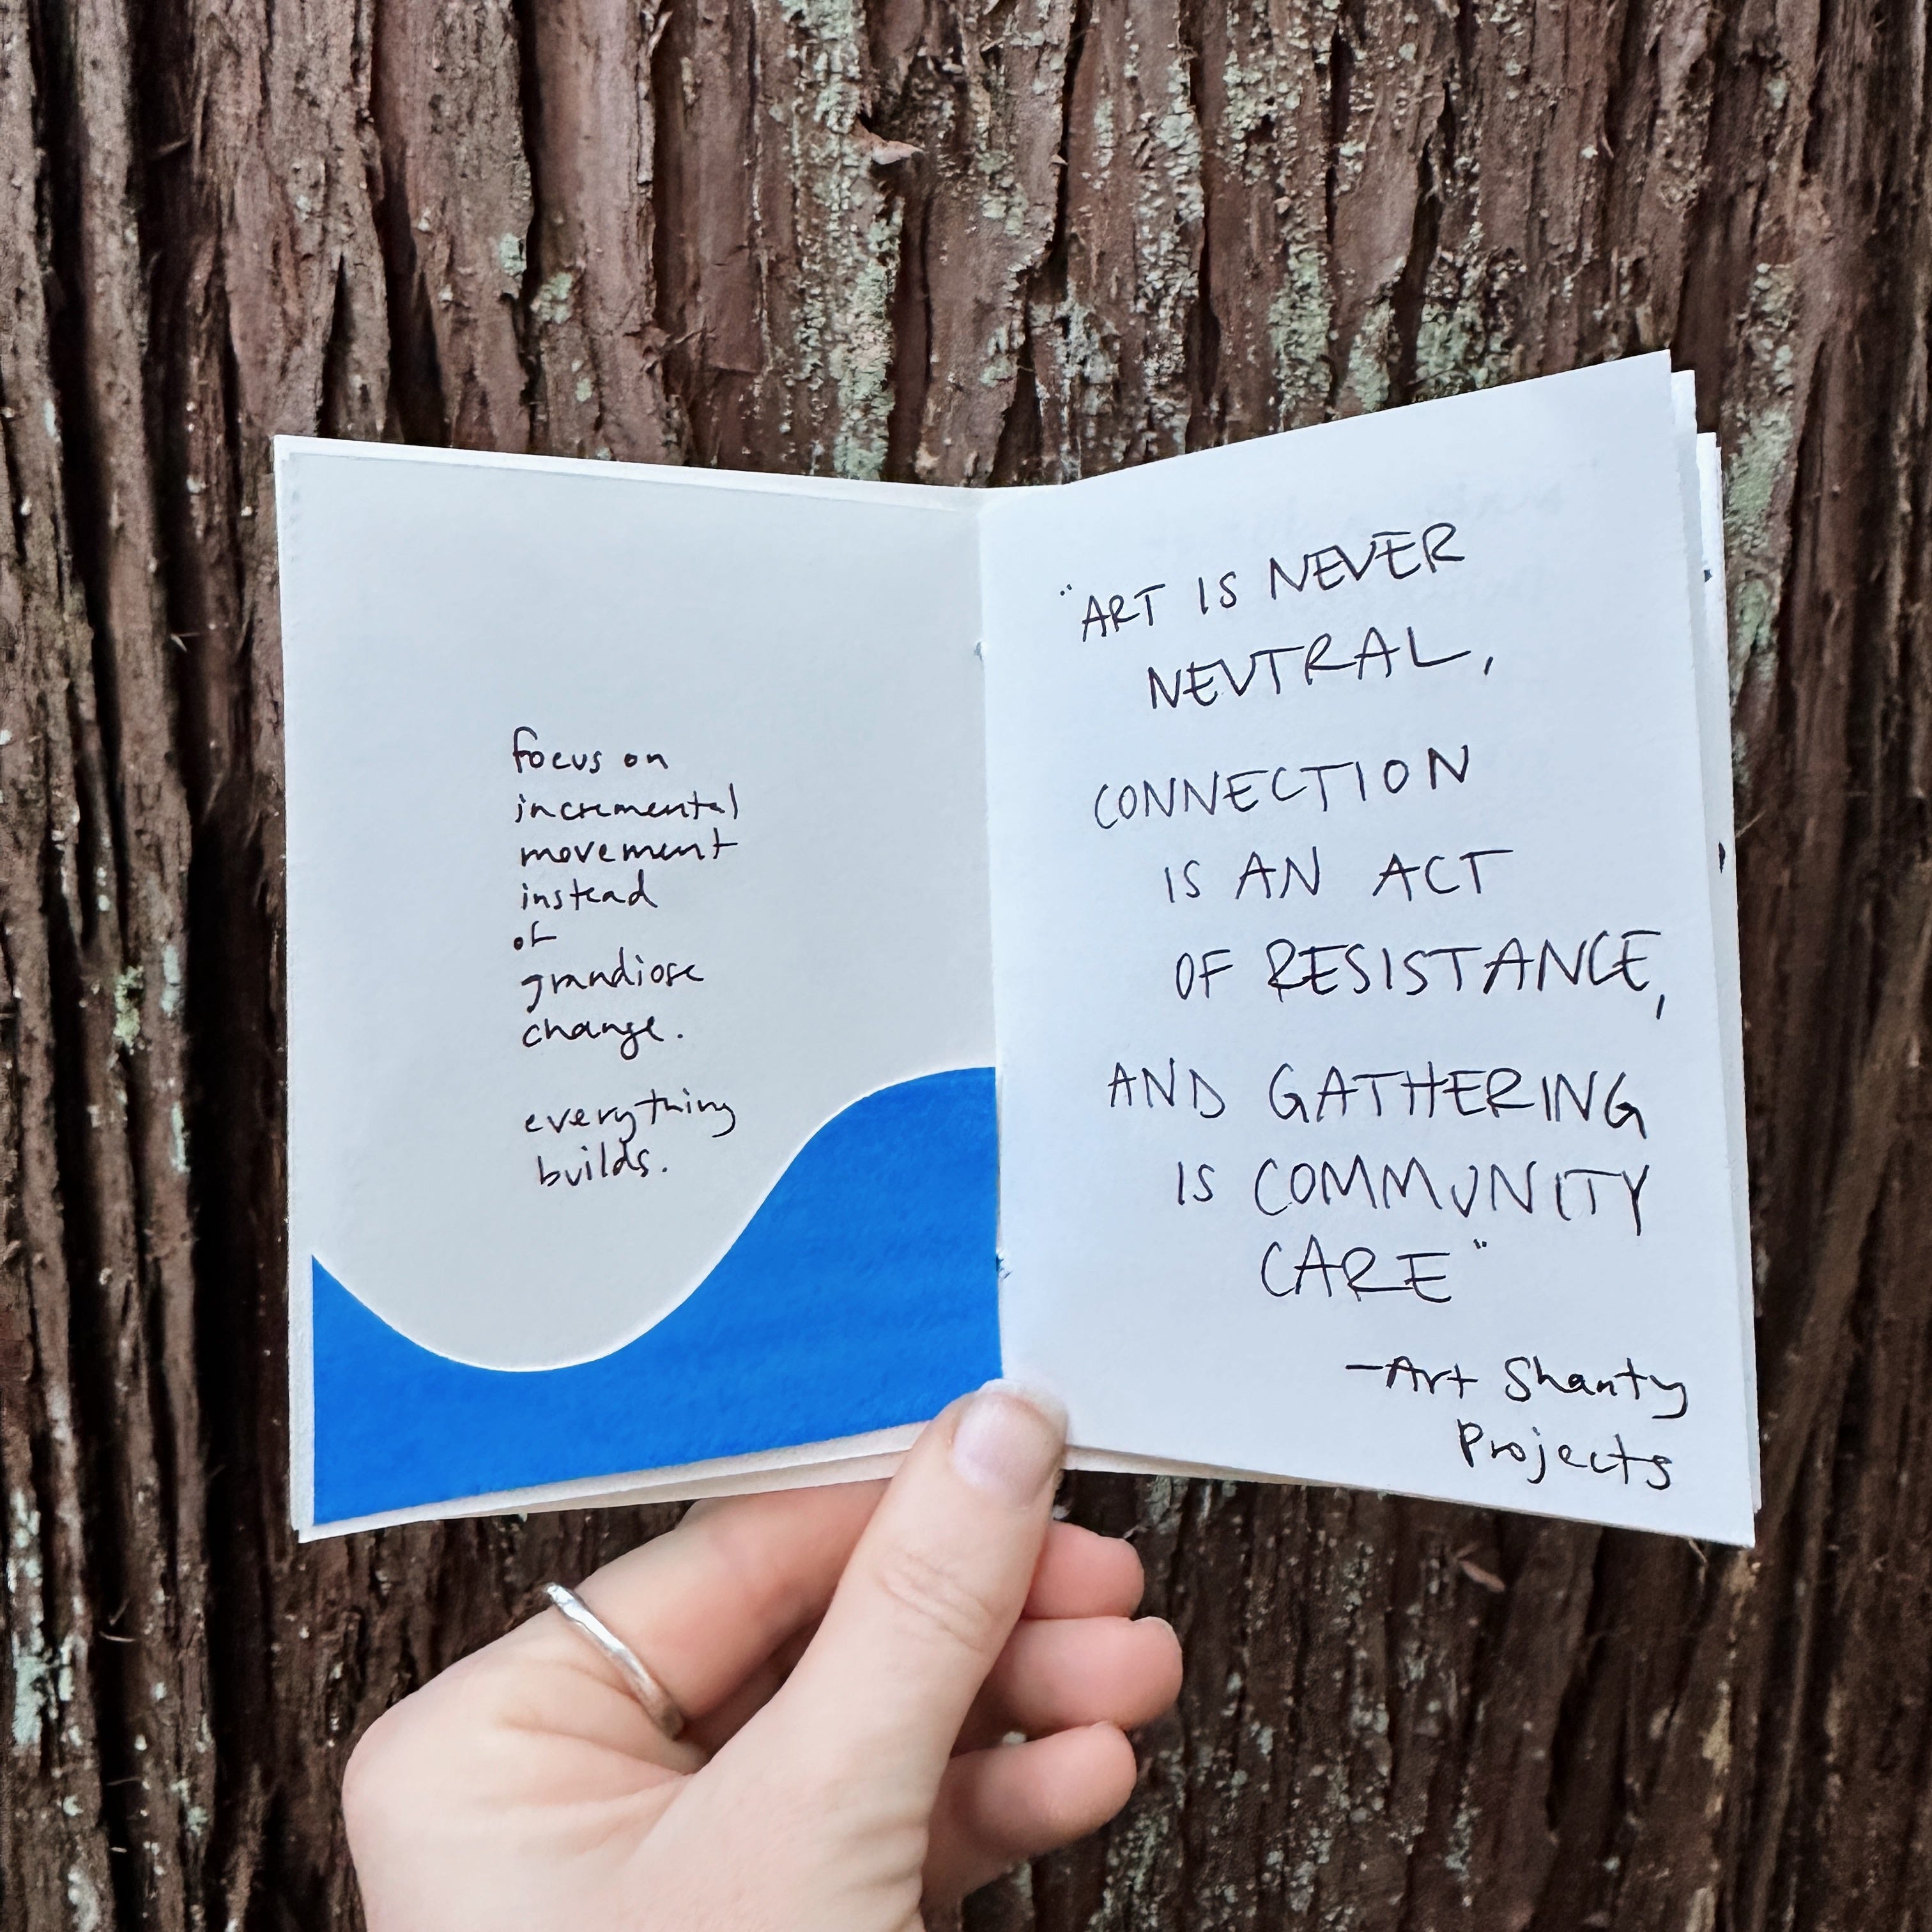 focus on
incremental
movement
instead
of
grandiose
change.
everything
builds.
"ART IS NEVER
NEUTRAL,
CONNECTION
IS AN ACT
OF RESISTANCE,
AND GATHERING
IS COMMUNITY
CARE"
-Art Shanty
Projects